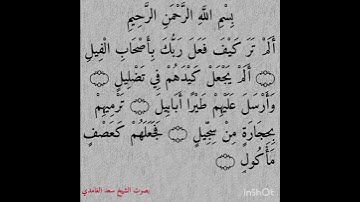 بِسْمِ اللَّهِ الرَّحْمَنِ الرَّحِيمِ
أَلَمْ تَرَ كَيْفَ فَعَلَ رَبُّكَ بِأَصْحَابِ الْفِيلِ
۝ أَلَمْ يَجْعَلْ كَيْدَهُمْ فِي تَضْلِيلٍ ۝
وَأَرْسَلَ عَلَيْهِمْ طَيْرًا أَبَابِيلَ ۝ تَرْمِيهِمْ
بِحِجَارَةٍ مِنْ سِجِّيلٍ ۝ فَجَعَلَهُمْ كَعَصْفٍ
مَأْكُولٍ
بصوت الشيخ سعد الغامدي
InShOt